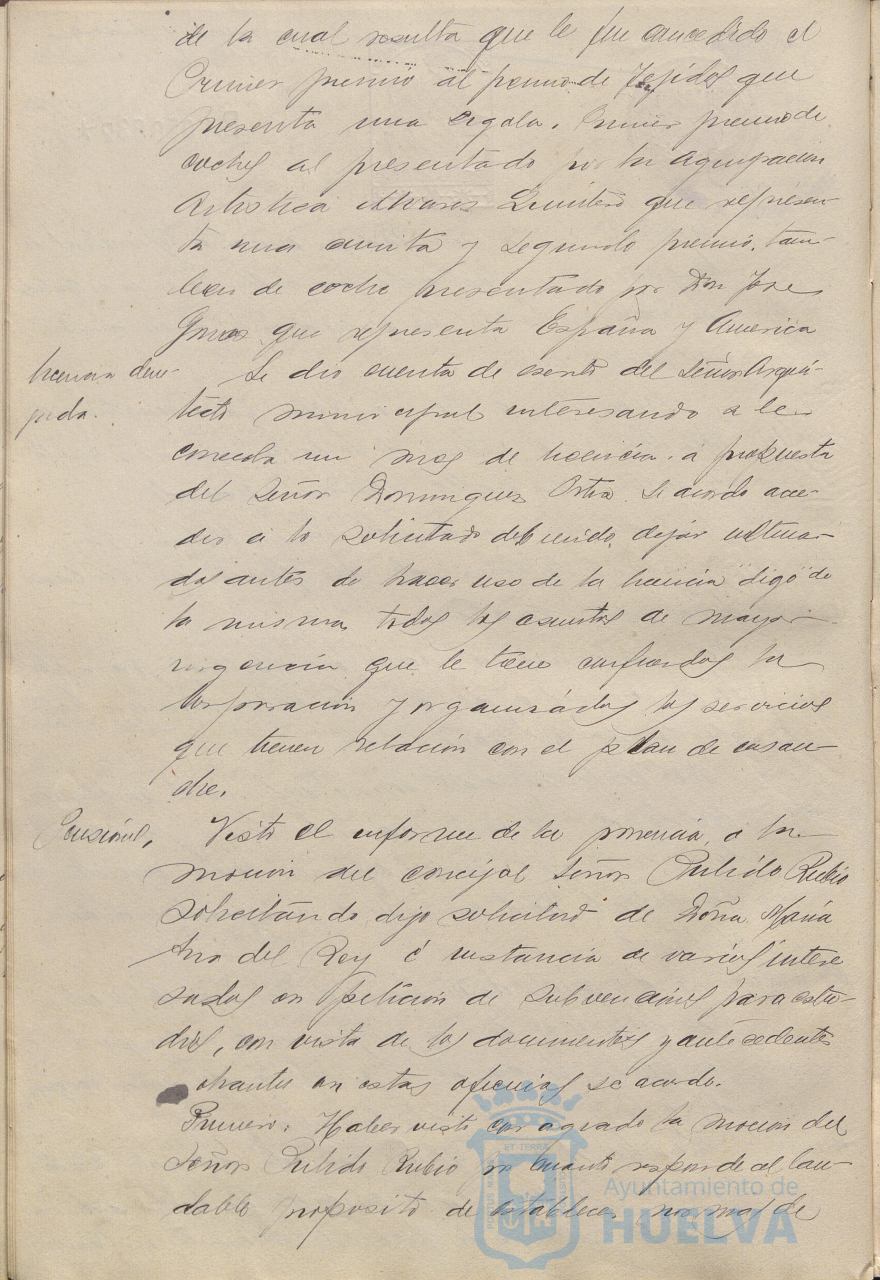 de la cual resulta que le fue concedido el
Primer premio al premio de Tejidos que
presenta una regata. Primer premio de
coches al presentado por la Agrupación
Artistica Alvarez Quintero que represen-
ta una carreta y segundo premio, tam-
bien de coche presentado por Don Jose
que representa España y America
licencia dene-
gada.
Se dio cuenta de escrito del Señor Arqui-
tecto municipal interesando se le
conceda un mes de licencia. a propuesta
del Señor Dominguez Ortiz se acordo acce-
der a lo solicitado debiendo dejar ultima-
dos antes de hacer uso de la licencia "digo" de
la misma todos los asuntos de mayor
urgencia que le tiene confiados la
Corporación y organizados los servicios
que tienen relación con el plan de ensan-
che.
Pensiones,
Visto el informe de la ponencia a la
moción del concejal Señor Pulido Rubio
solicitando digo solicitud de Doña Maria
Ana del Rey é instancia de varios intere
sados en petición de subvenciones para estu-
dios, con vista de los documentos y antecedentes
obrantes en estas oficinas se acordo.
Primero. Haber visto con agrado la moción del
Señor Pulido Rubio en cuanto responde al lau-
dable proposito de establecer normas de
Ayuntamiento de
HUELVA